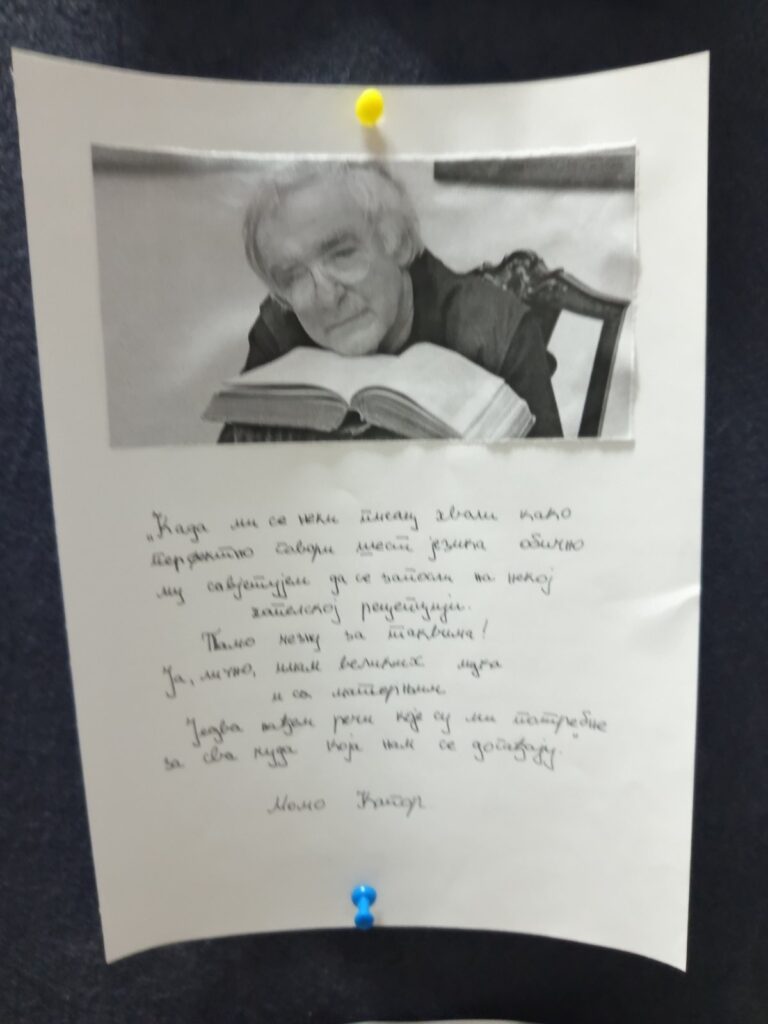 „Када ми се неки писац хвали како
перфектно говори шест језика обично
му савјетујем да се запосли на некој
хотелској рецепцији.
Тамо чезну за таквима!
Ја, лично, имам великих мука
и са матерњим.
Једва нађем речи које су ми потребне
за сва чуда која нам се догађају."
Момо Капор